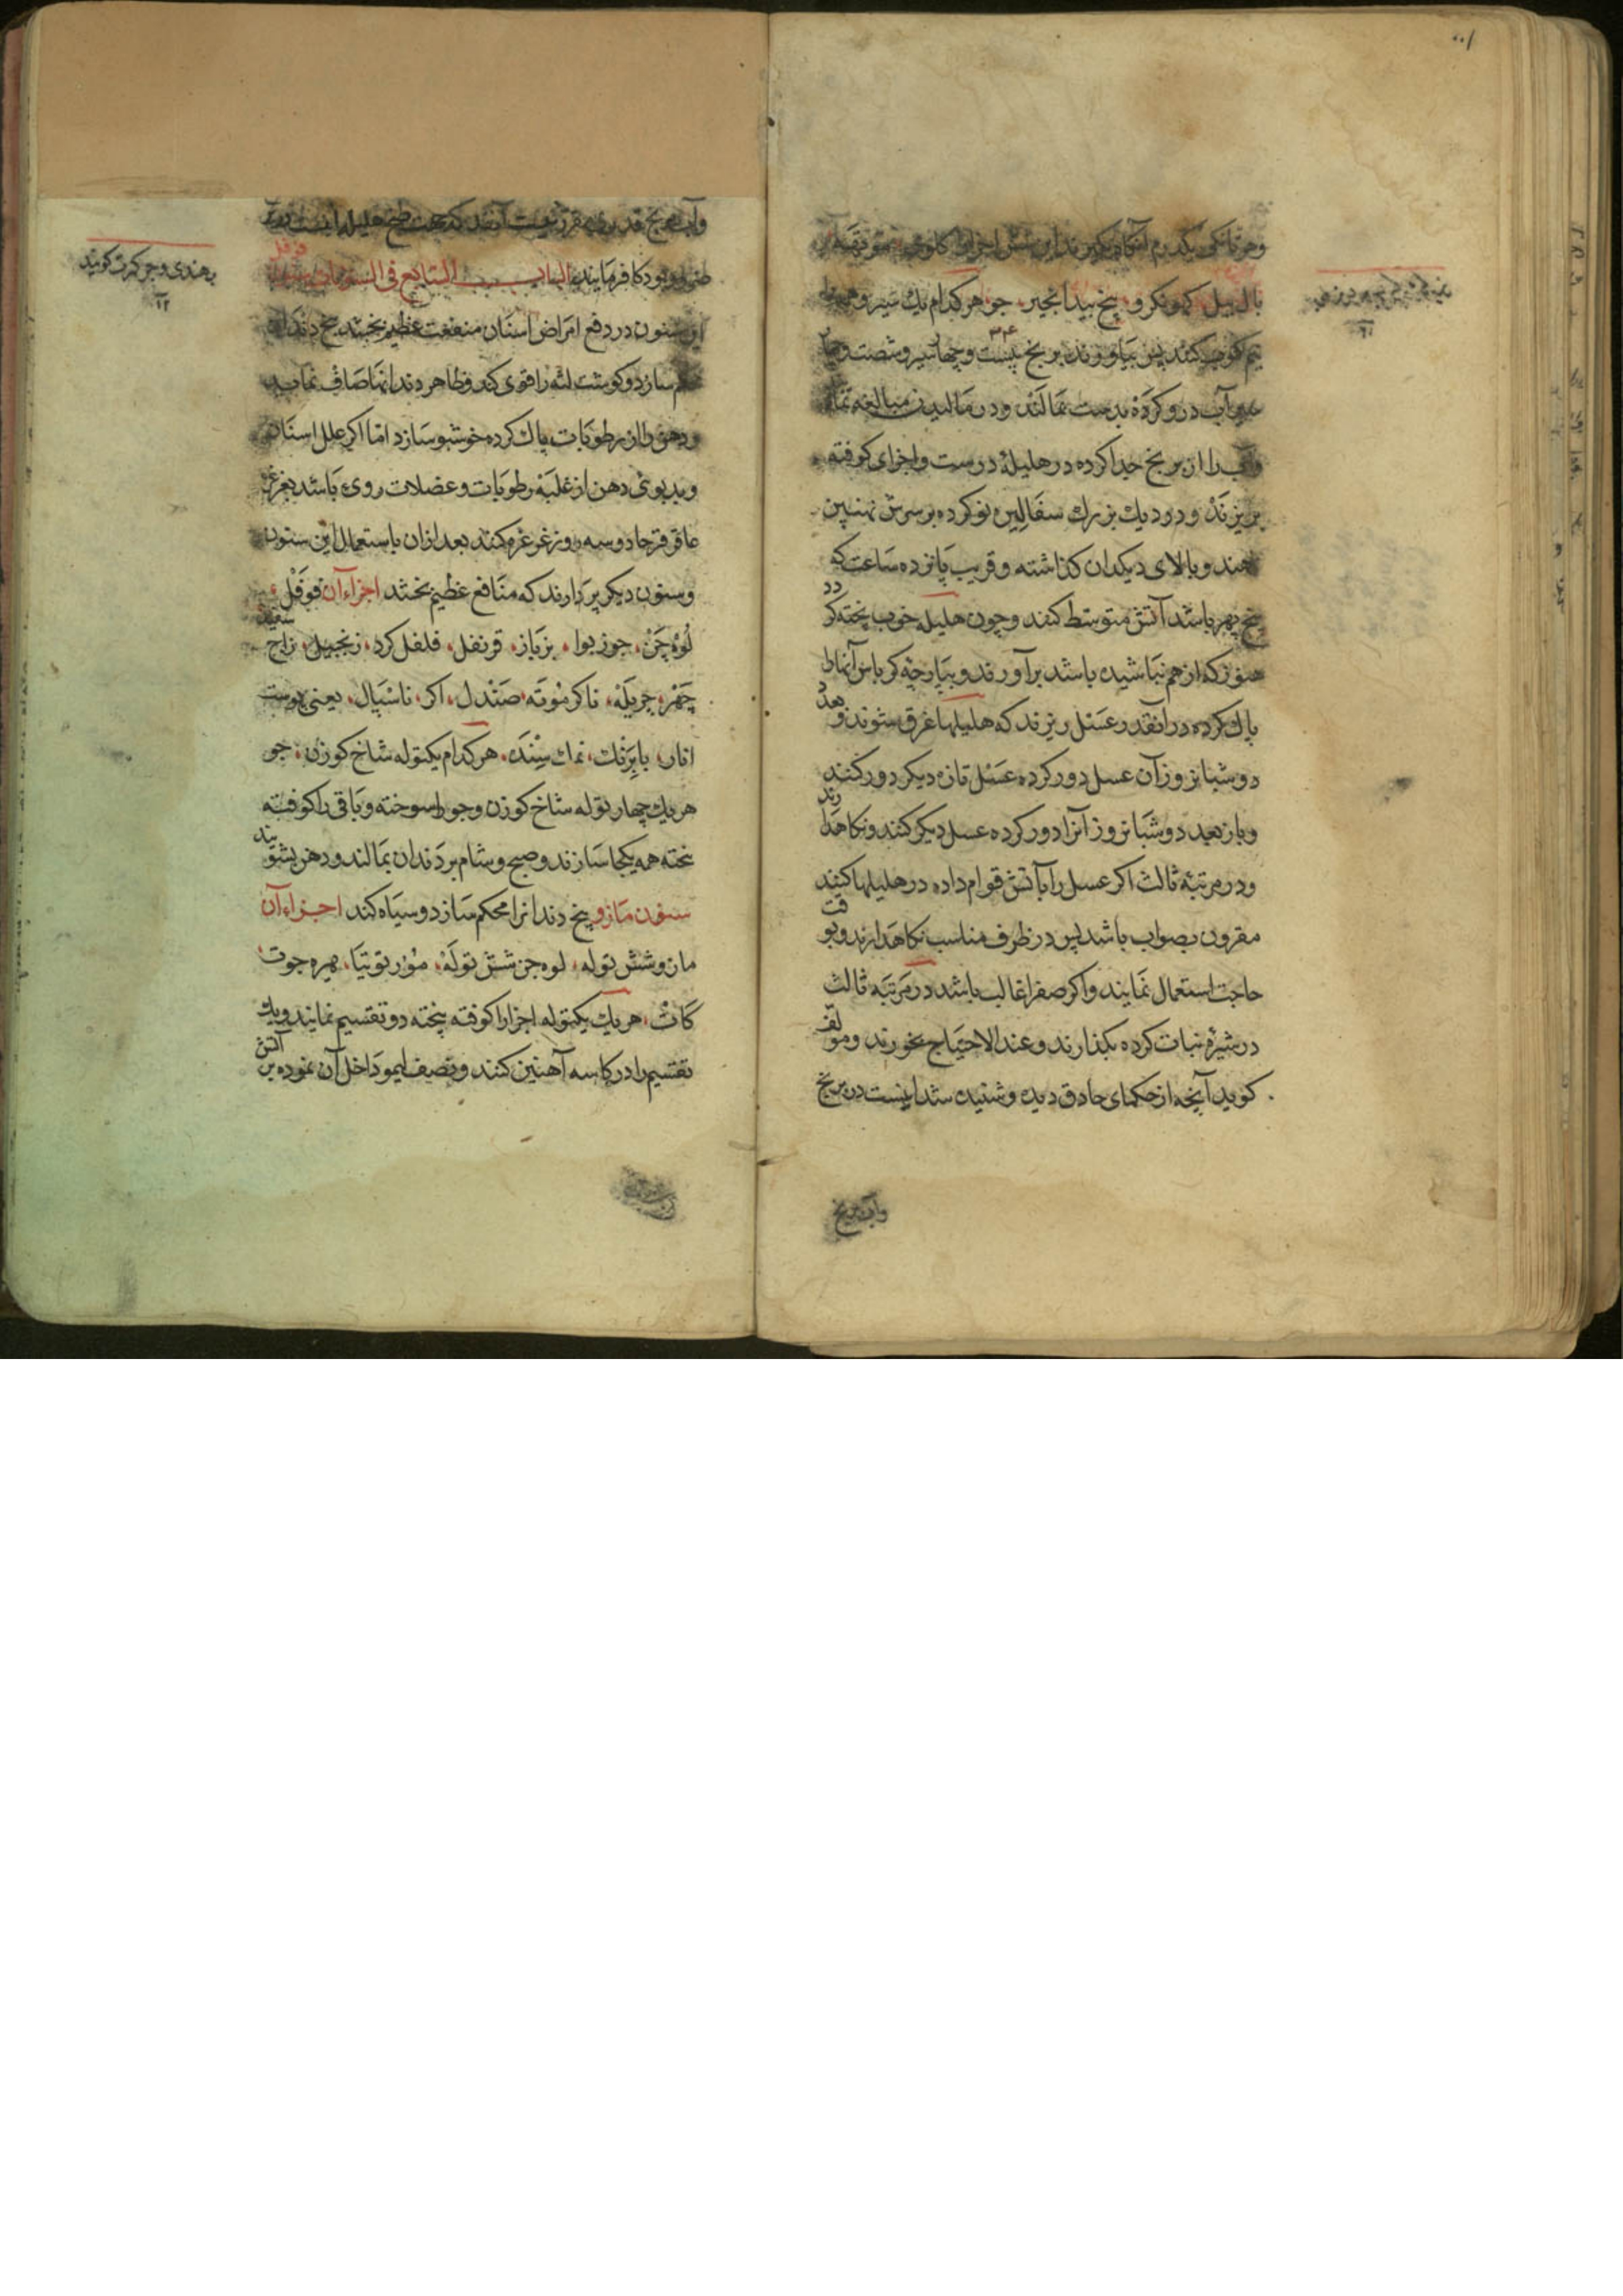 بال بیل کهوبکرو بیخ بیدانجیر جو هرکدام یك سیر و همه را
نیم کوب کنند پس بیاورند برنج بیست و چهار سیر و شصت
آب درو کرده بدست بمالند و در مالیدن مبالغه نما
و آب را از برنج جدا کرده در هلیلۀ درست و اجزای کوفته
بریزند و در دیك بزرك سفالین نو کرده بر سرش نهنبن
نهند و بالای دیکدان کذاشته و قریب پانزده ساعت که
پنج پهر باشد آتش متوسط کنند و چون هلیله خوب پخته کردد
هنوز که از هم نپاشیده باشد برآورند و بپارچه کرباس آنها را
پاك کرده در آنقدر عسل ریزند که هلیلها غرق شوند و بعد
دو شبانروز آن عسل دور کرده عسل تازه دیکر دور کنند
و باز بعد دو شبانروز آنرا دور کرده عسل دیکر کنند و نکاهدارند
و در مرتبۀ ثالث اکر عسل را بآتش قوام داده در هلیلها کنند
مقرون بصواب باشد پس در ظرف مناسب نکاهدارند و بوقت
حاجت استعمال نمایند و اکر صفرا غالب باشد در مرتبه ثالث
در شیرۀ نبات کرده بکذارند و عند الاحتیاج بخورند و مولف
کوید آنچه از حکمای حاذق دیده و شنیده شد اینست در برنج
وآب برنج
وآب برنج قدری مقرر نیست آنقدر که جهت طبخ هلیله
بود کار فرمایند الباب السابع فی السنونات
این سنون در دفع امراض اسنان منفعت عظیم بخشد بیخ دندان
محکم سازد و کوشت لثه را قوی کند و ظاهر دندانها صاف نماید
و دهن را از رطوبات پاك کرده خوشبو سازد اما اکر علل اسنان
و بدبوئی دهن از غلبۀ رطوبات و عضلات روی باشد بغرغرۀ
عاقرقرحا دو سه روز غرغره کنند بعد ازان باستعمال این سنون
و سنون دیکر پردازند که منافع عظیم بخشد اجزاء آن فوفل
لوه چن جوزبوا بزباز قرنفل فلفل کرد زنجبیل زاج سفید
چهر چریله ناکرموته صندل اکر ناسپال یعنی پوست
انار بابرنك نمك سنده هرکدام یکتوله شاخ کوزن جو
هریك چهار توله شاخ کوزن و جو را سوخته و باقی را کوفته
بخته همه یکجا سازند و صبح و شام بر دندان بمالند و دهن بشویند
سنون مازو بیخ دندانرا محکم سازد و سیاه کند اجزاء آن
مازو شش توله لوه چن شش توله مور توتیا هیره جوت
کات هریك یکتوله اجزا را کوفته بیخته دو تقسیم نمایند و یك
تقسیم را در کاسه آهنین کنند و نصف لیمو داخل آن نموده بر آتش
بهندی وجرکرت کویند
۱۲